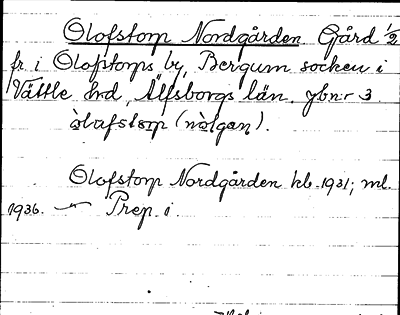 Olofstorp Nordgården Gård 1/2
fr. i Olofstorps by, Bergum socken i
Vättle hd, Älfsborgs län. jbnr 3
òlafstɷrp (nòlgaṇ).
Olofstorp Nordgården kb. 1931; ml.
1936. — Prep. i.